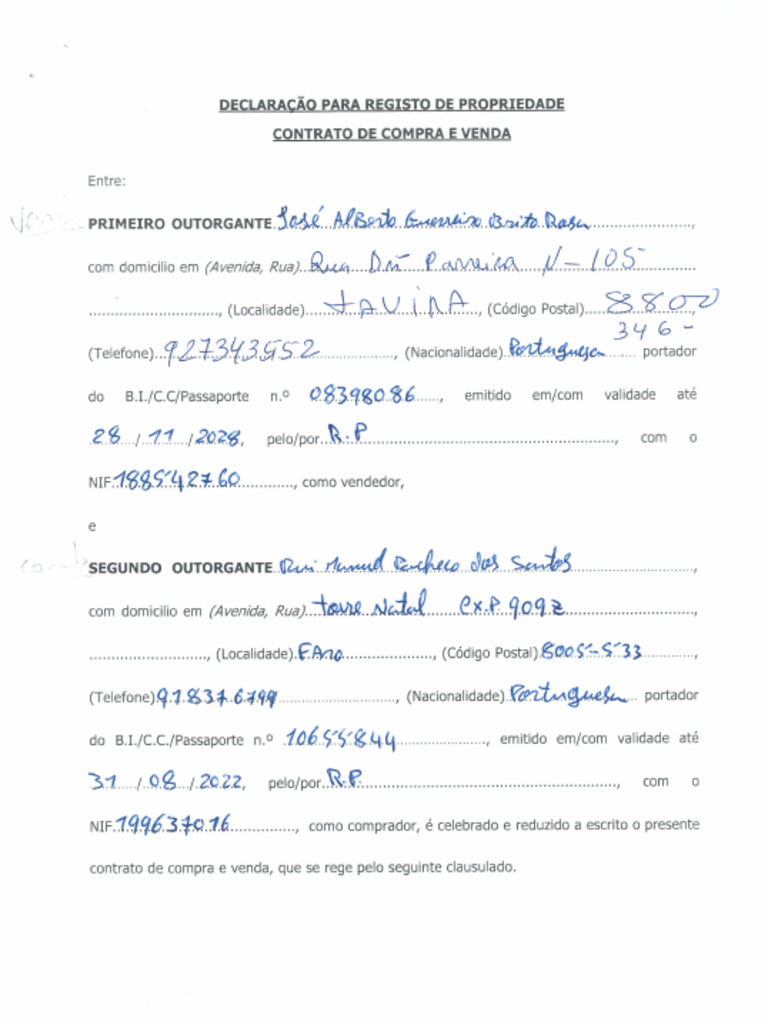 DECLARAÇÃO PARA REGISTO DE PROPRIEDADE
CONTRATO DE COMPRA E VENDA
Entre:
PRIMEIRO OUTORGANTE José Alberto Guerreiro Brito Rosa,
com domicilio em (Avenida, Rua) Rua Drº Parreira N-105
, (Localidade) TAVIRA, (Código Postal) 8800
346-
(Telefone) 927343552, (Nacionalidade) Portuguesa portador
do B.I./C.C/Passaporte n.º 08398086, emitido em/com validade até
28 / 11 / 2028, pelo/por R.P, com o
NIF 188542760, como vendedor,
e
SEGUNDO OUTORGANTE Rui Manuel Pacheco dos Santos,
com domicilio em (Avenida, Rua) torre Natal Cx.P 909Z,
, (Localidade) FAro, (Código Postal) 8005-533,
(Telefone) 918376799, (Nacionalidade) Portuguesa portador
do B.I./C.C./Passaporte n.º 10655844, emitido em/com validade até
31 / 08 / 2022, pelo/por R.P., com o
NIF 199637016, como comprador, é celebrado e reduzido a escrito o presente
contrato de compra e venda, que se rege pelo seguinte clausulado.